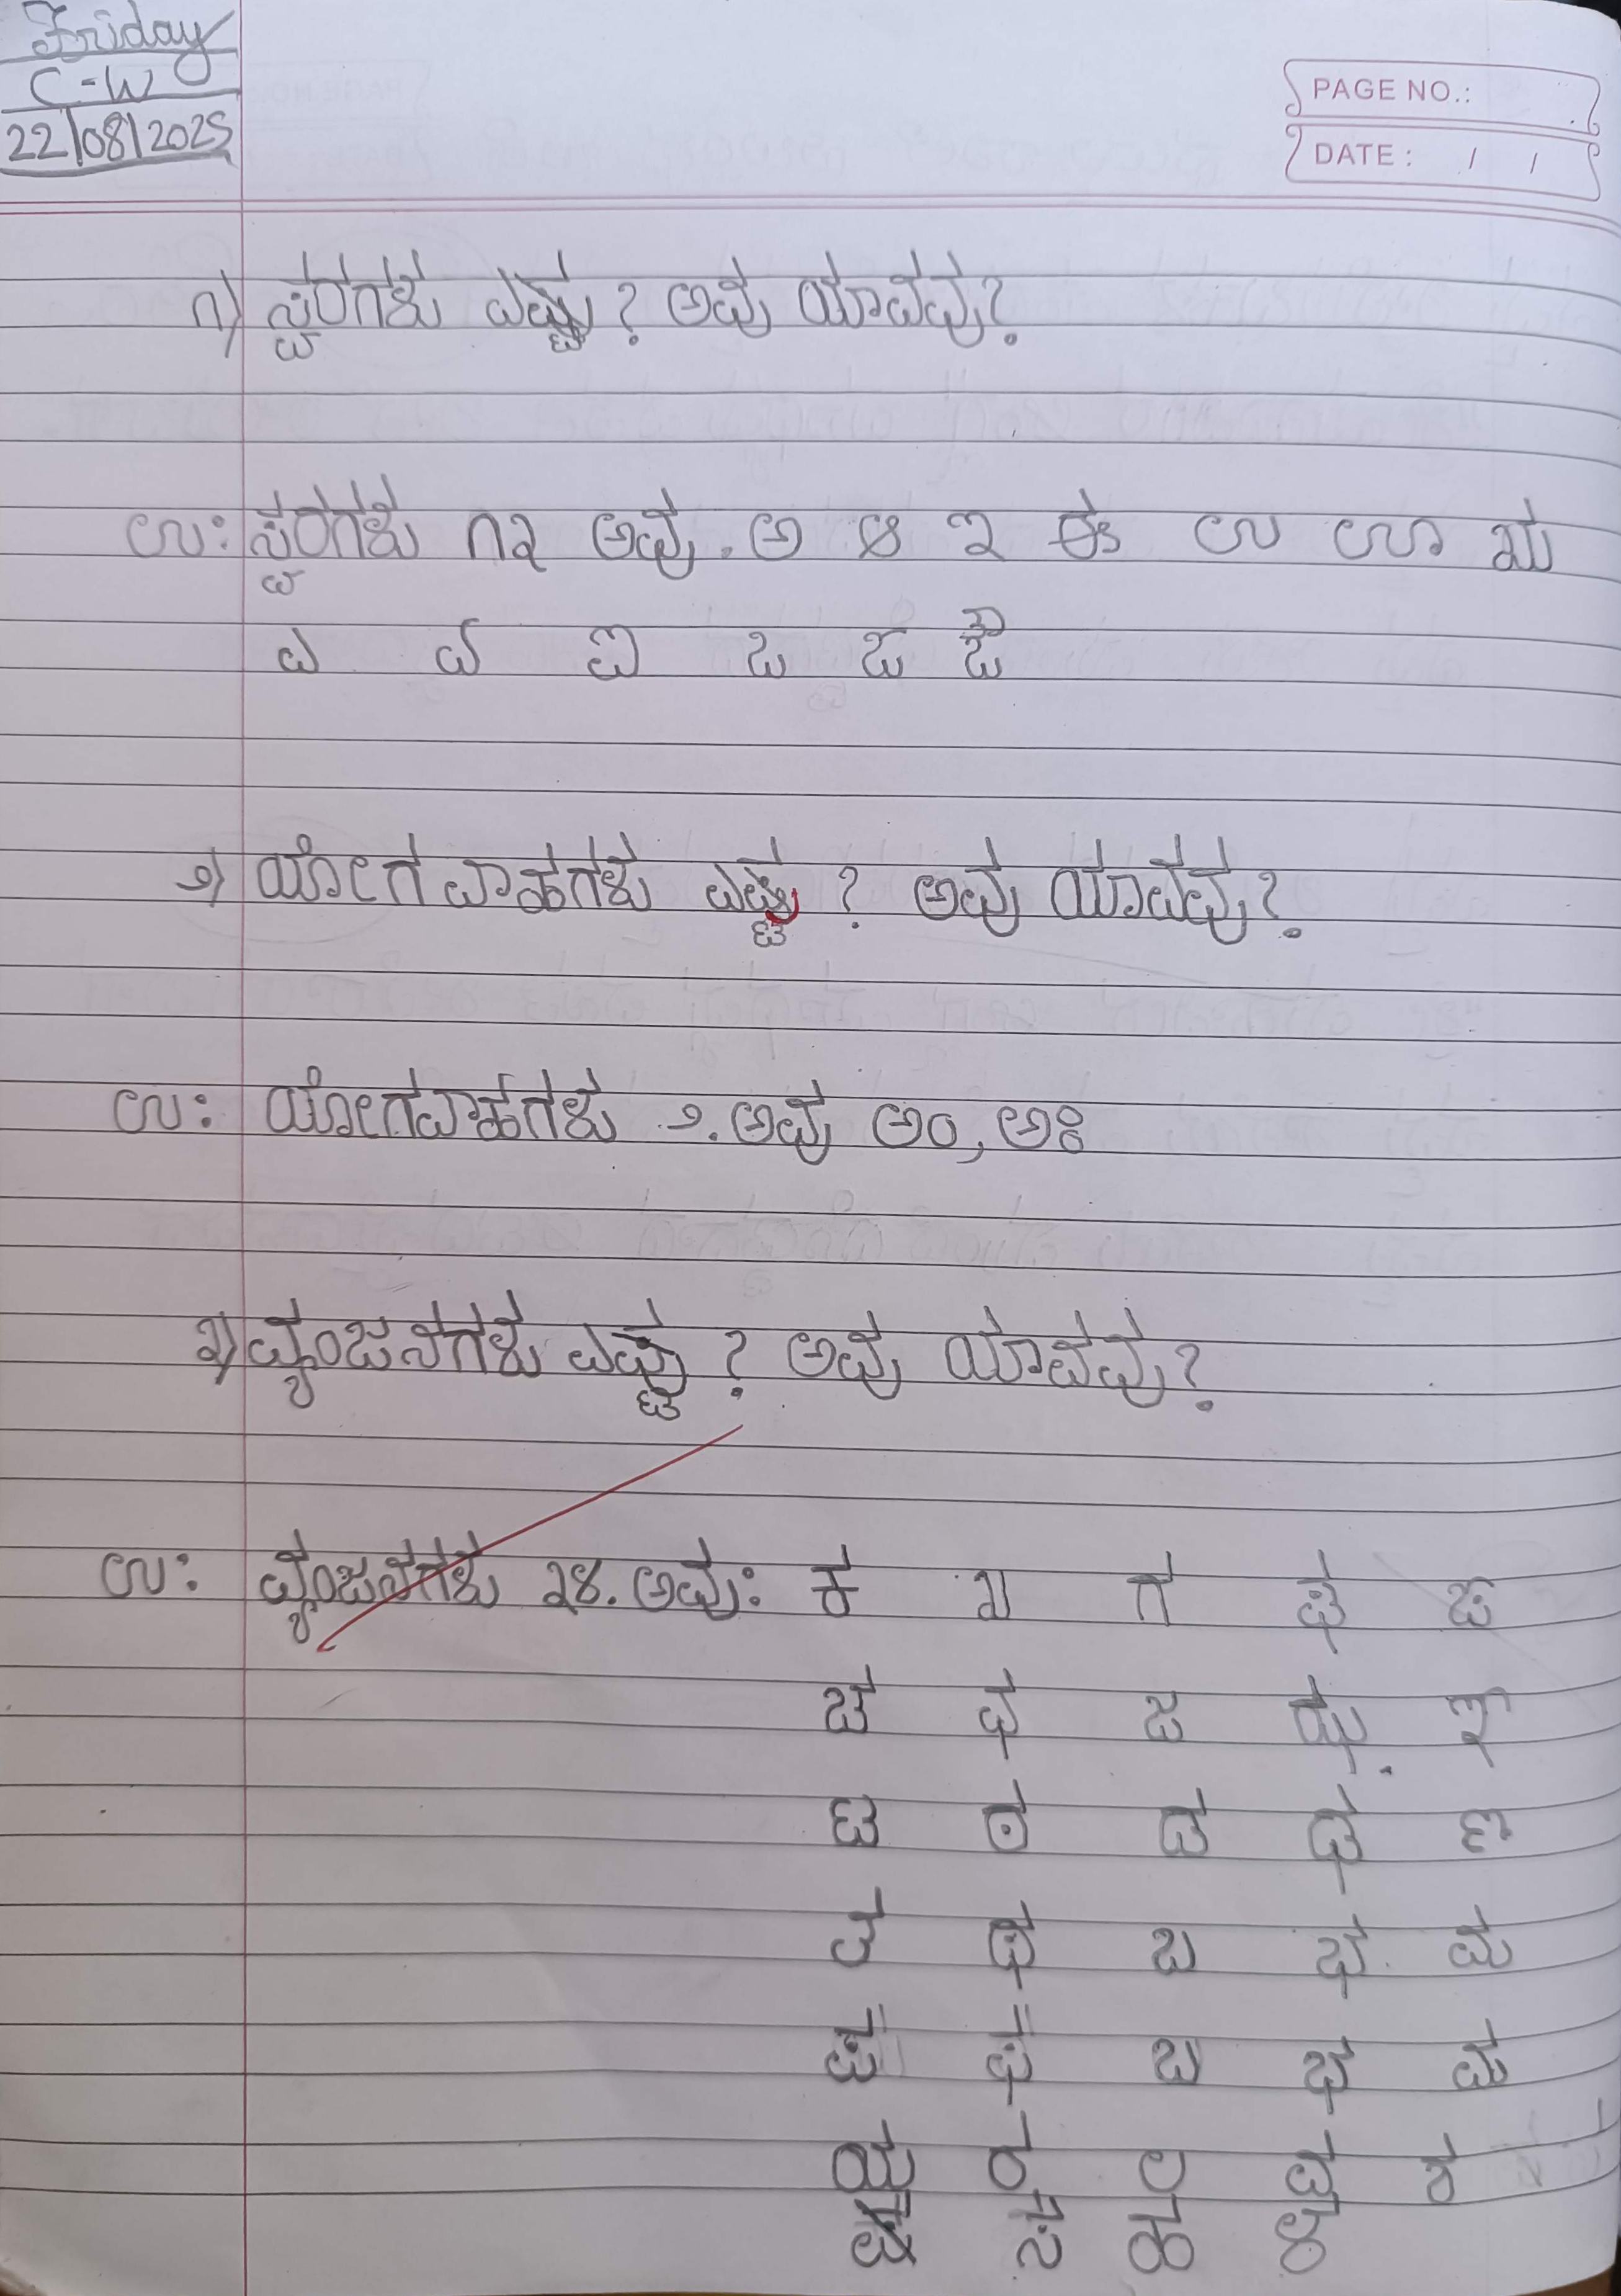 Friday
C-W
22/08/2025
PAGE NO.:
DATE : / /
೧) ಸ್ವರಗಳು ಎಷ್ಟು ? ಅವು ಯಾವುವು?
ಉ: ಸ್ವರಗಳು ೧೩ ಅವು . ಅ ಆ ಇ ಈ ಉ ಊ ಋ
ಎ ಏ ಐ ಒ ಓ ಔ
೨) ಯೋಗವಾಹಗಳು ಎಷ್ಟು ? ಅವು ಯಾವುವು?
ಉ: ಯೋಗವಾಹಗಳು ೨. ಅವು ಅಂ, ಅಃ
೩) ವ್ಯಂಜನಗಳು ಎಷ್ಟು ? ಅವು ಯಾವುವು?
ಉ: ವ್ಯಂಜನಗಳು ೩೪. ಅವು: ಕ ಖ ಗ ಘ ಙ
ಚ ಛ ಜ ಝ ಞ
ಟ ಠ ಡ ಢ ಣ
ತ ಥ ಬ ಭ ಮ
ಪ ಫ ಬ ಭ ಮ
ಯ ರ ಲ ವ ಶ
ಷ ಸ ಹ ಳ